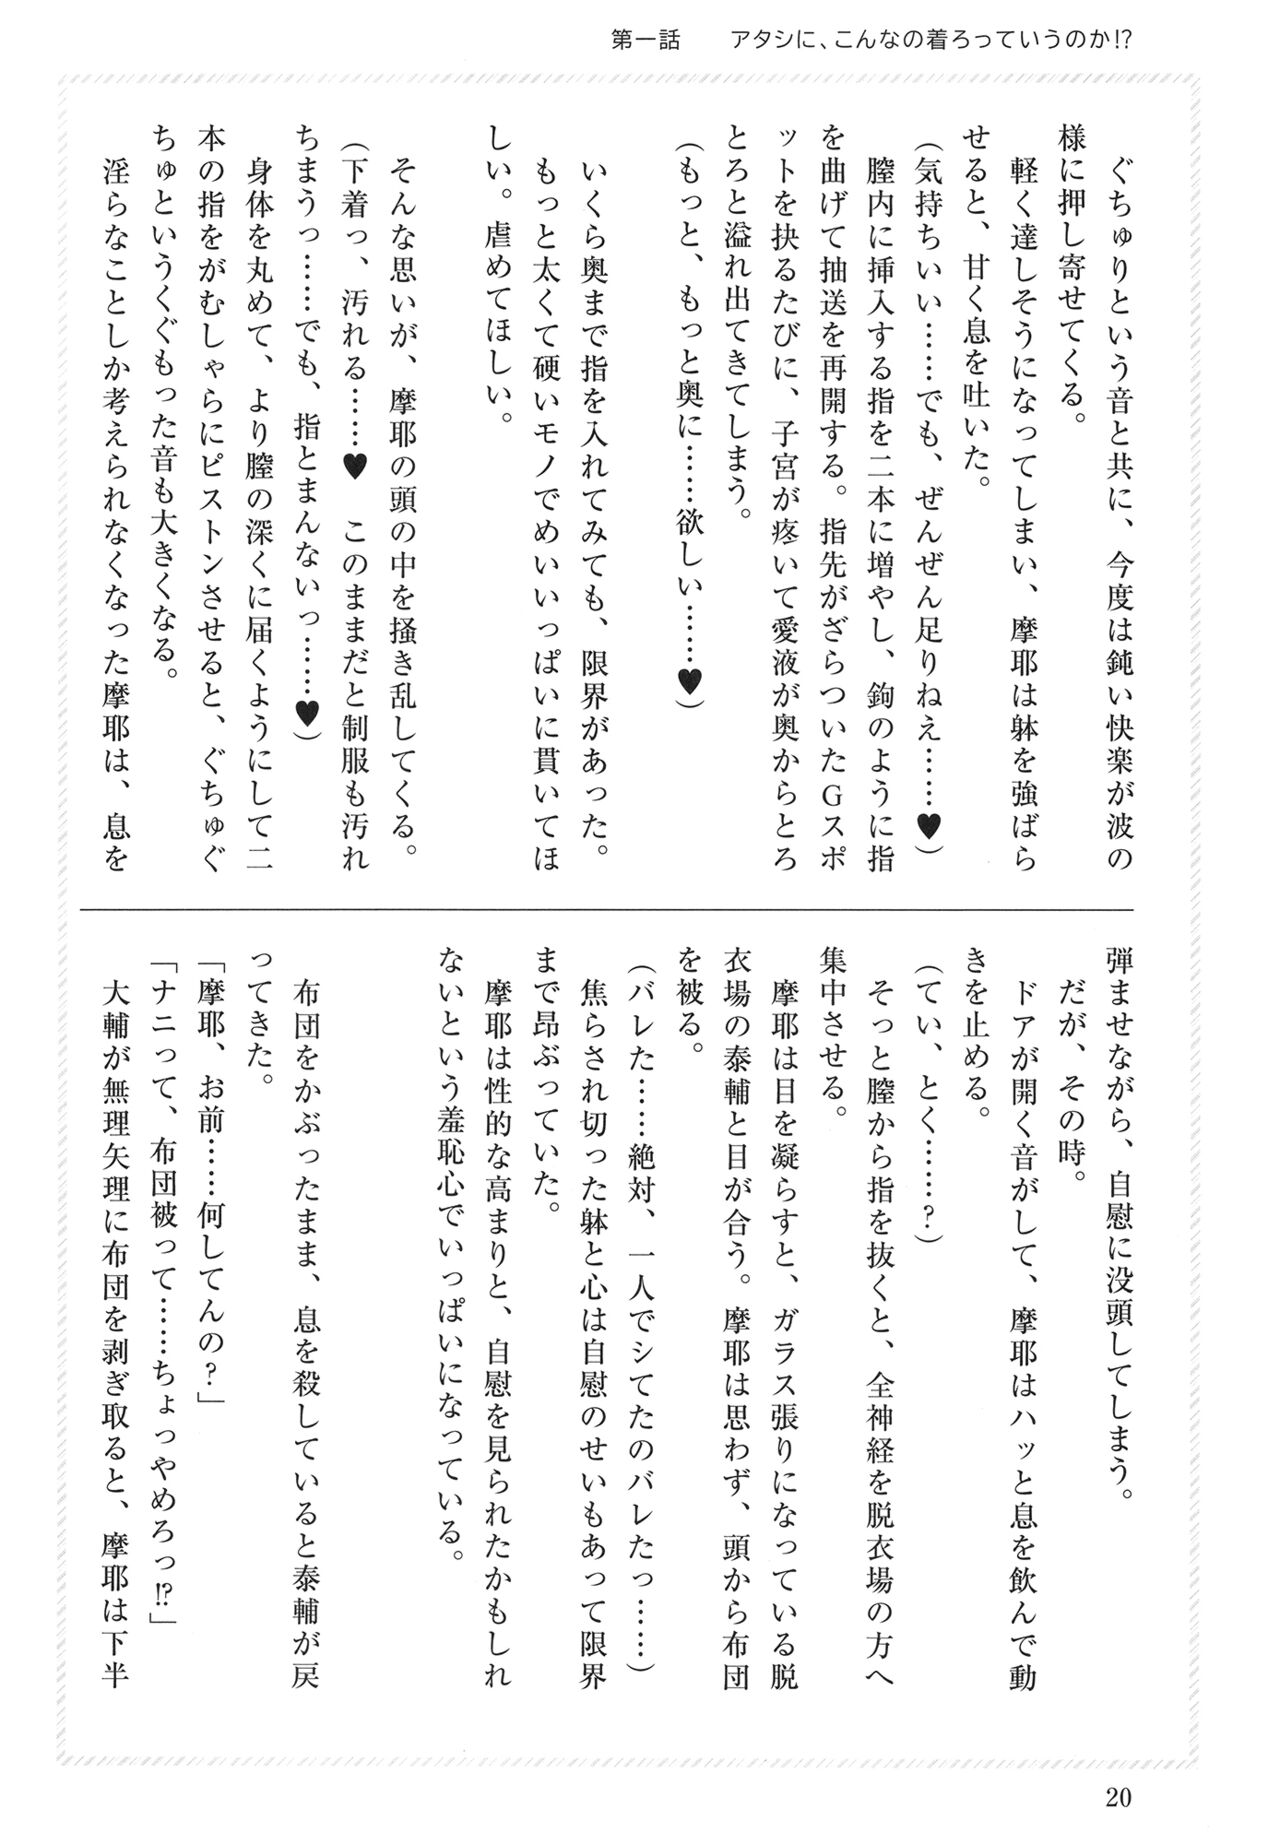 第一話　アタシに、こんなの着ろっていうのか!?
　ぐちゅりという音と共に、今度は鈍い快楽が波の
様に押し寄せてくる。
　軽く達しそうになってしまい、摩耶は躰を強ばら
せると、甘く息を吐いた。
（気持ちいい……でも、ぜんぜん足りねえ……♥）
　膣内に挿入する指を二本に増やし、鉤のように指
を曲げて抽送を再開する。指先がざらついたGスポ
ットを抉るたびに、子宮が疼いて愛液が奥からとろ
とろと溢れ出てきてしまう。
（もっと、もっと奥に……欲しい……♥）
　いくら奥まで指を入れてみても、限界があった。
　もっと太くて硬いモノでめいいっぱいに貫いてほ
しい。虐めてほしい。
　そんな思いが、摩耶の頭の中を掻き乱してくる。
（下着っ、汚れる……♥　このままだと制服も汚れ
ちまうっ……でも、指とまんないっ……♥）
　身体を丸めて、より膣の深くに届くようにして二
本の指をがむしゃらにピストンさせると、ぐちゅぐ
ちゅというくぐもった音も大きくなる。
　淫らなことしか考えられなくなった摩耶は、息を
弾ませながら、自慰に没頭してしまう。
　だが、その時。
　ドアが開く音がして、摩耶はハッと息を飲んで動
きを止める。
（てい、とく……？）
　そっと膣から指を抜くと、全神経を脱衣場の方へ
集中させる。
　摩耶は目を凝らすと、ガラス張りになっている脱
衣場の泰輔と目が合う。摩耶は思わず、頭から布団
を被る。
（バレた……絶対、一人でシてたのバレたっ……）
　焦らされ切った躰と心は自慰のせいもあって限界
まで昂ぶっていた。
　摩耶は性的な高まりと、自慰を見られたかもしれ
ないという羞恥心でいっぱいになっている。
　布団をかぶったまま、息を殺していると泰輔が戻
ってきた。
「摩耶、お前……何してんの？」
「ナニって、布団被って……ちょっやめろっ!?」
　大輔が無理矢理に布団を剥ぎ取ると、摩耶は下半
20